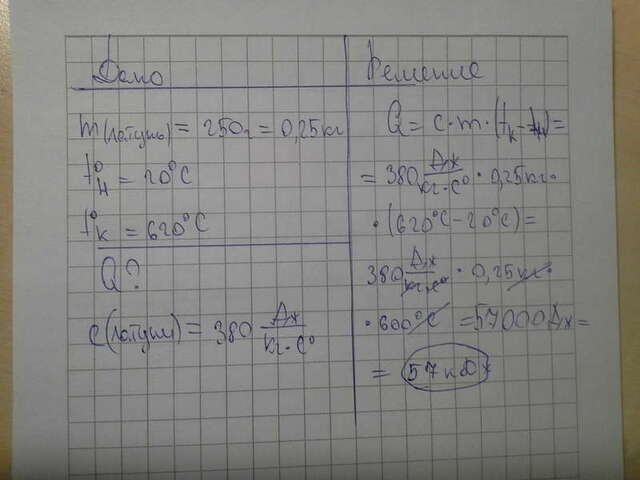 Дано
m(латунь) = 250г = 0,25кг
t°н = 20°C
t°к = 620°C
Q?
c(латуни) = 380 Дж/кг·C°
Решение
Q = c·m·(tк - tн) =
= 380 Дж/кг·C° · 0,25кг·
·(620°C - 20°C) =
380 Дж/кг·C° · 0,25кг·
·600°C = 57000Дж =
= 57кДж